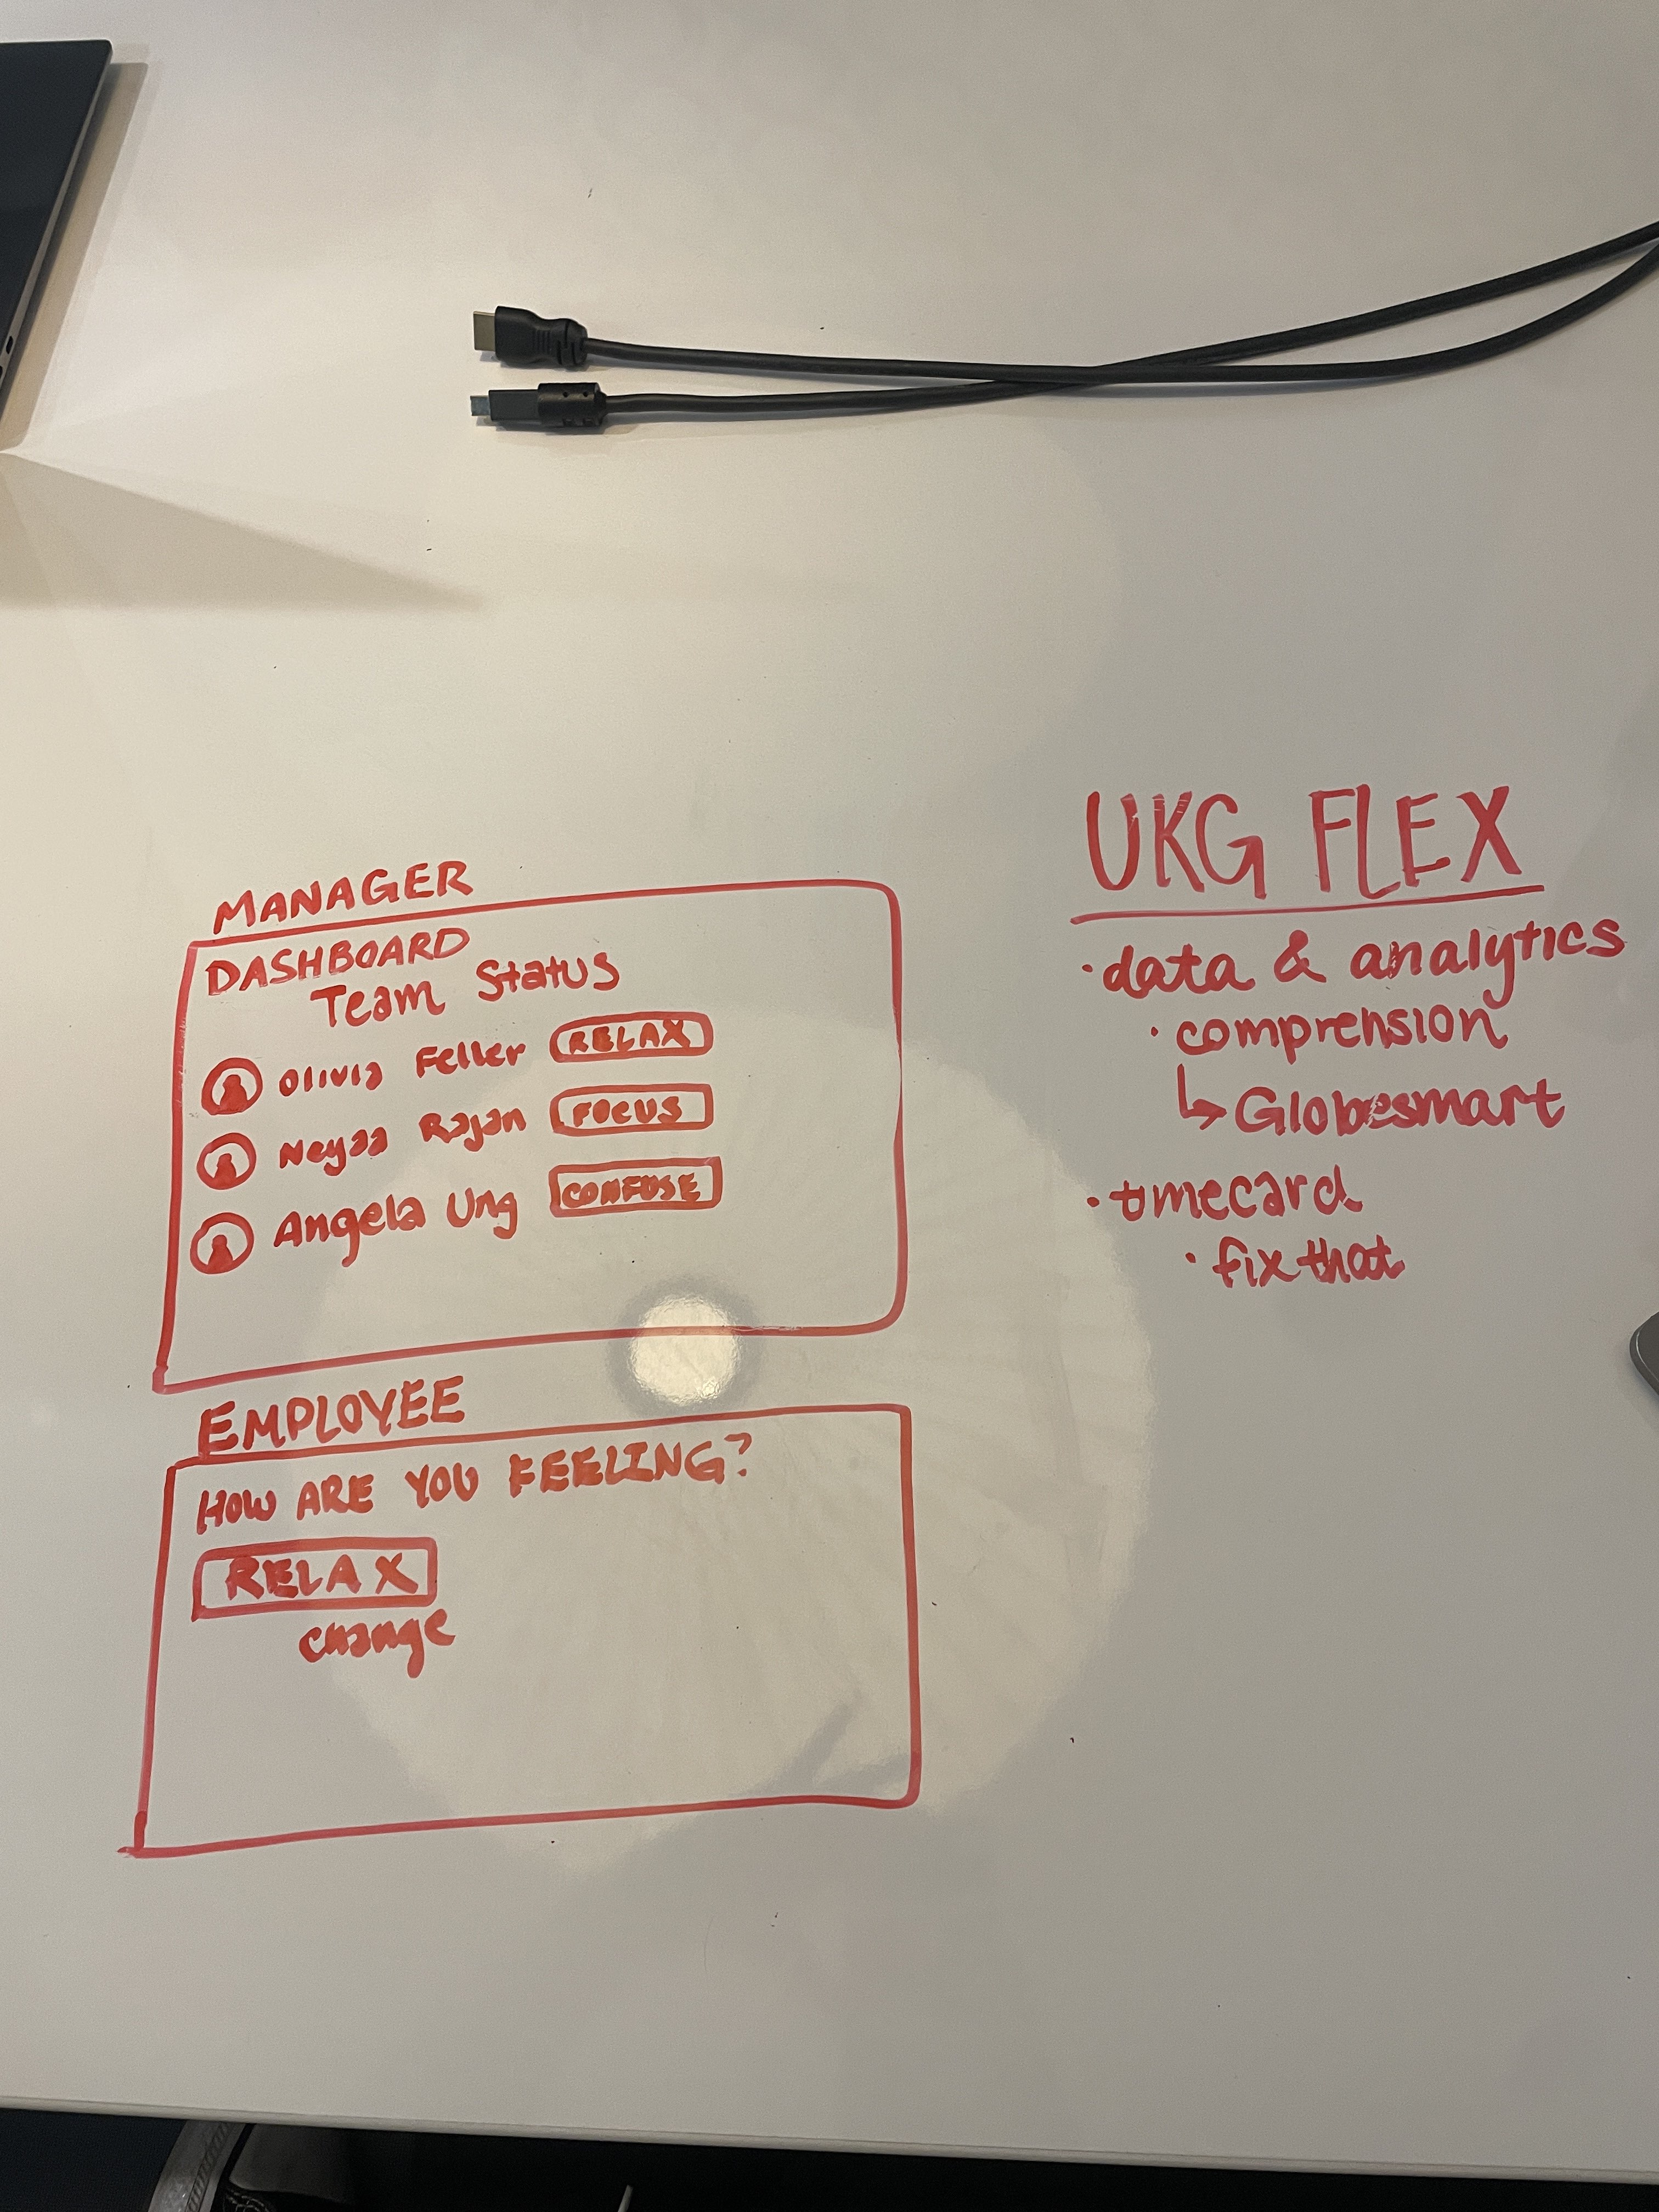 MANAGER
DASHBOARD
Team Status
Olivia Feller RELAX
Neyaa Rajan FOCUS
Angela Ung CONFUSE
EMPLOYEE
HOW ARE YOU FEELING?
RELAX
change
UKG FLEX
· data & analytics
· comprension
↳ Globesmart
· timecard
· fix that